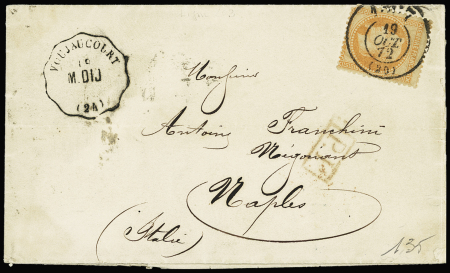 VOUJAUCOURT
16
M.DIJ
(24)
19
OCT
72
Monsieur
Antoin Franchini
Négociant
Naples
(Italie)
135